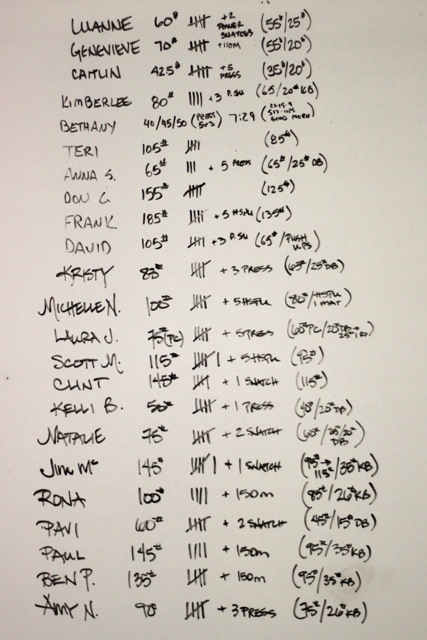 LUANNE 60# |||| +2 POWER SNATCHES (55#/25#)
GENEVIEVE 70# |||| +110M (55#/20#)
CAITLIN 425# |||| +5 PRESS (35#/20#)
KIMBERLEE 80# |||| +3 P.SU (65/20# KB)
BETHANY 40/45/50 (PRESS 5x3) 7:29
TERI 105# |||| (85#)
ANNA S. 65# ||| + 5 PRESS (65#/25# DB)
DON C. 155# |||| (125#)
FRANK 185# |||| + 5 HSPU (135#)
DAVID 105# |||| +3 P.SU (65#/PUSH UPS)
KRISTY 83# |||| + 3 PRESS (63#/25# DB)
MICHELLE N. 100# |||| + 5 HSPU (80#/HSPU 1 MAT)
LAURA J. 75#(PC) |||| + 5 PRESS (60# PC/
SCOTT M. 115# |||| | + 5 HSPU (95#)
CLINT 145# |||| + 1 SNATCH (115#)
KELLI B. 50# |||| + 1 PRESS (40#/20# DB)
NATALIE 75# |||| + 2 SNATCH (60#/25/20# DB)
JIM Mc 145# |||| | + 1 SNATCH (95#→115#/35# KB)
RONA 100# |||| + 150m (85#/26# KB)
PAVI 60# |||| + 2 SNATCH (45#/15# DB)
PAUL 145# |||| + 150m (95#/35# KB)
BEN P. 135# |||| + 150m (95#/35# KB)
AMY N. 90# |||| + 3 PRESS (75#/26# KB)